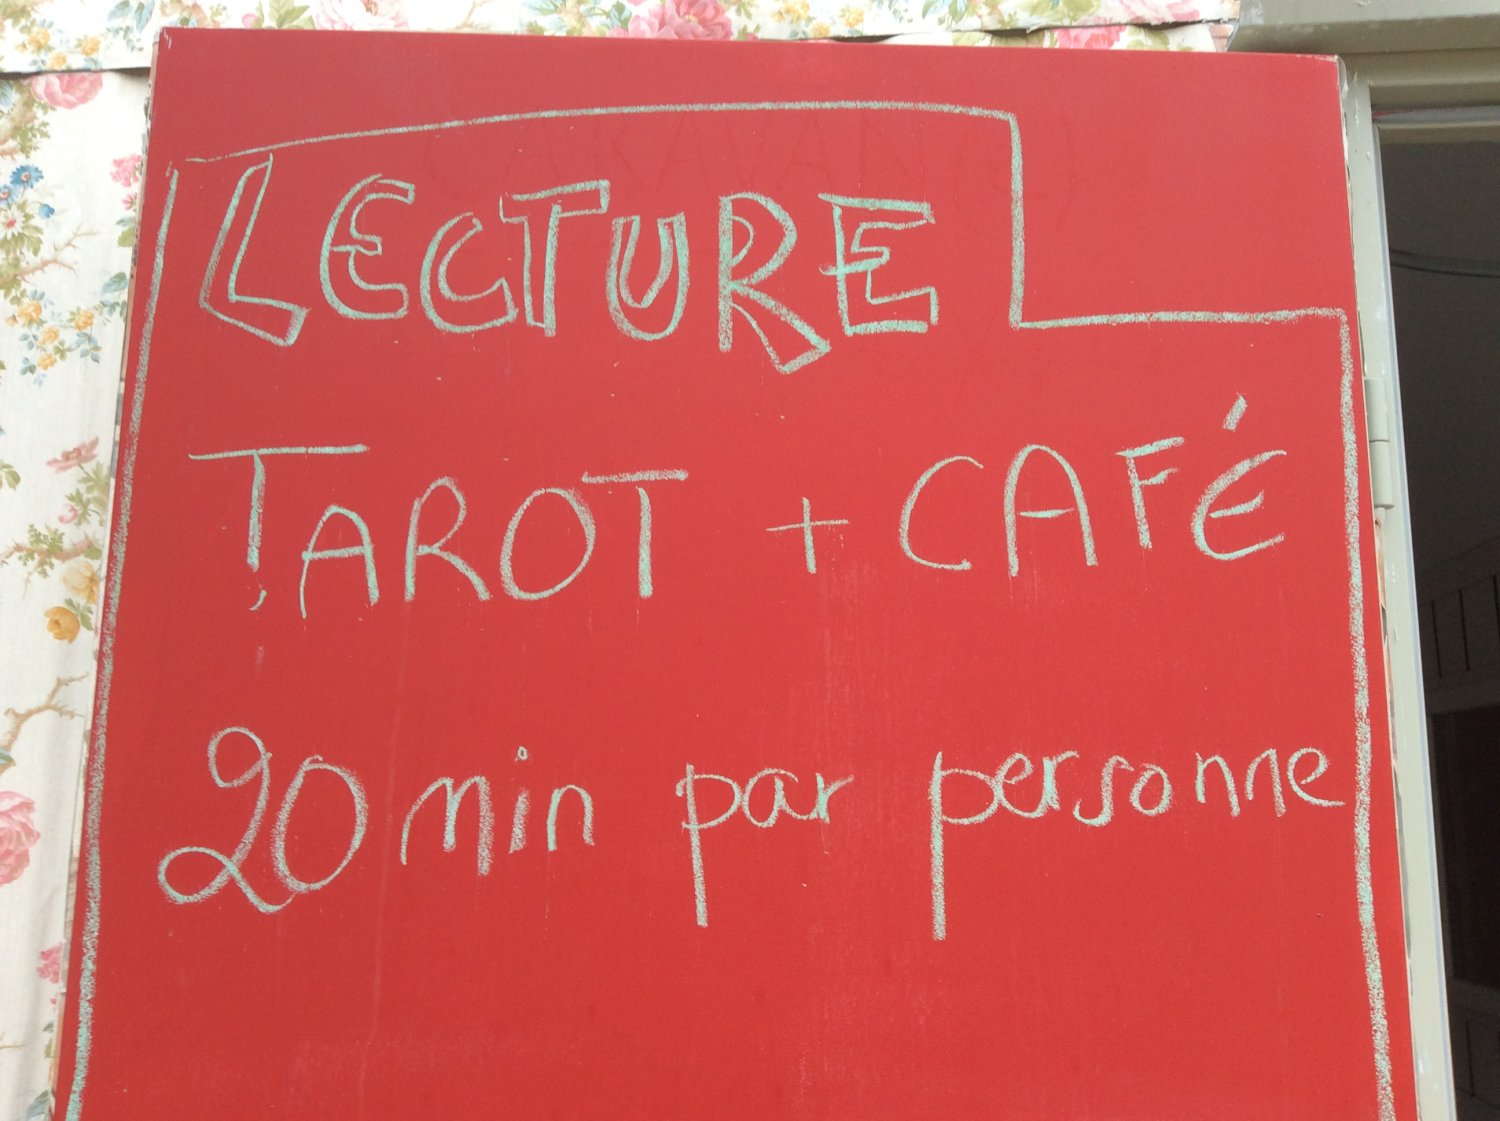 LECTURE
TAROT + CAFÉ
20 min par personne